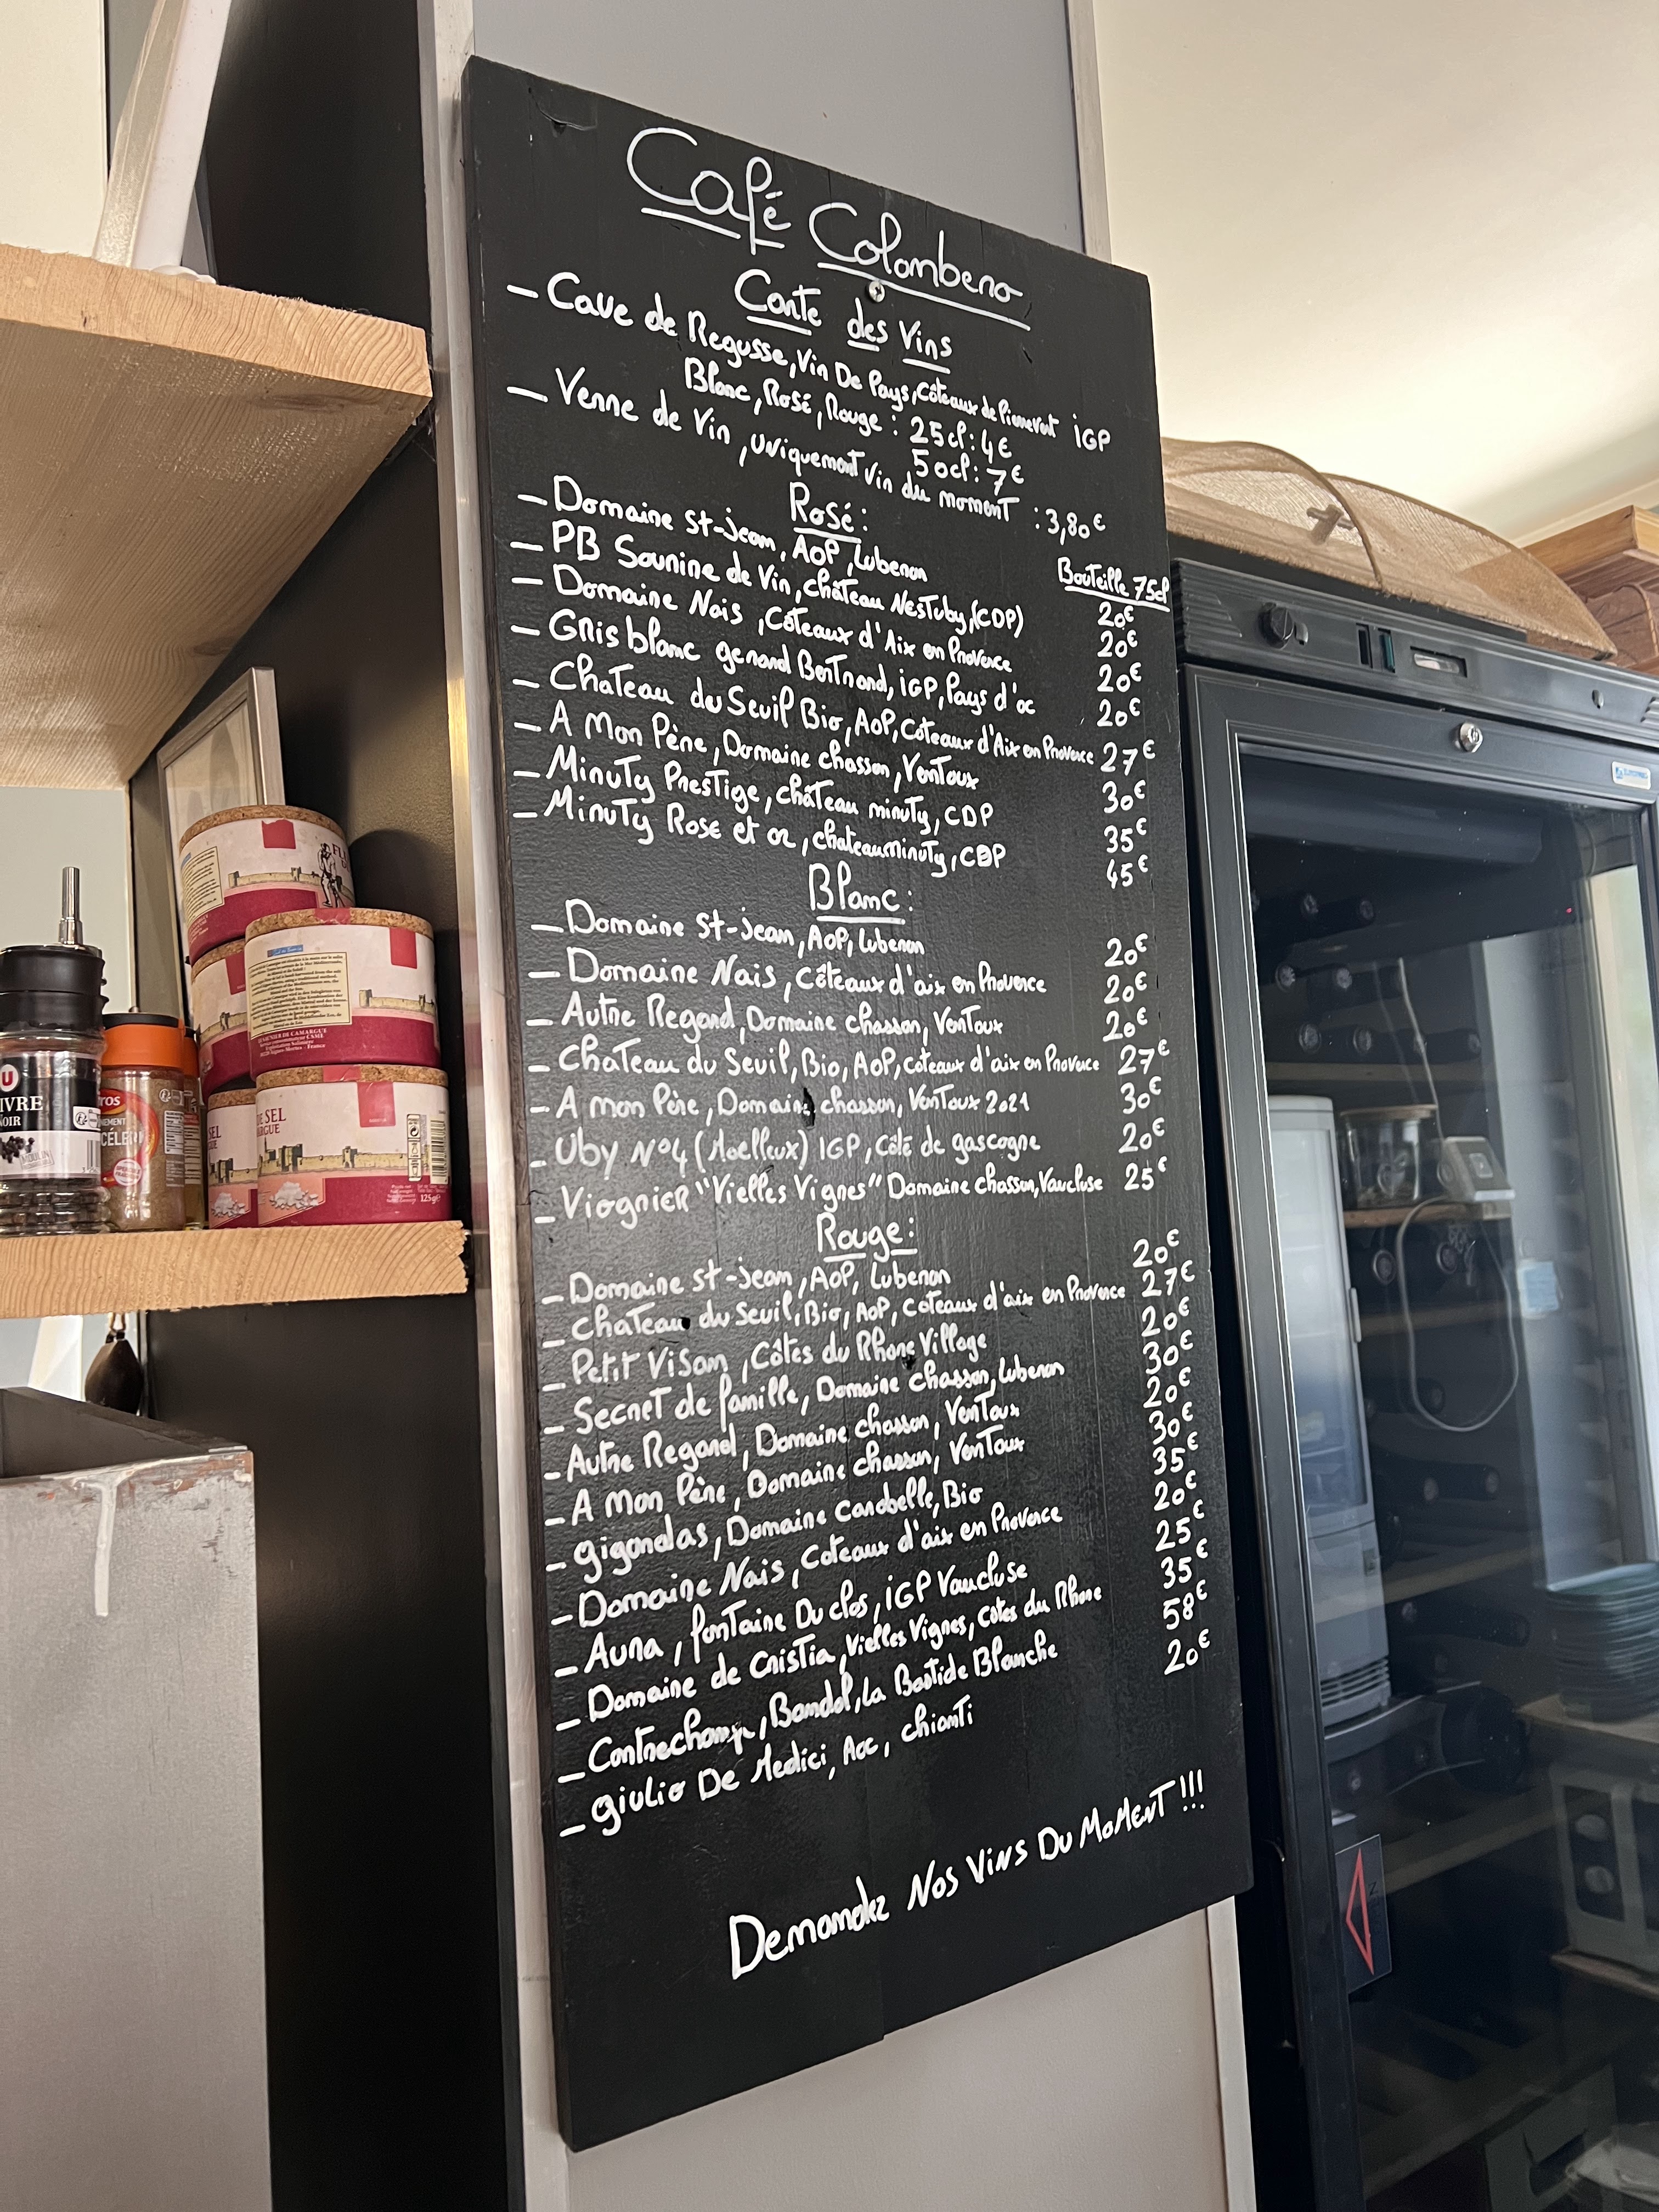 Café Colombero
Carte des Vins
- Cave de Regusse, Vin De Pays, Côteaux de Pierrevert iGP
Blanc, Rosé, Rouge : 25cl : 4€
50cl : 7€
- Verre de Vin, uniquement vin du moment : 3,80€
Rosé :
Bouteille 75cl
- Domaine St-jean, AOP, Luberon 20€
- PB Sourire de Vin, château Nestuby, (CDP) 20€
- Domaine Nais, Côteaux d'Aix en Provence 20€
- Gris blanc gerard Bertrand, iGP, Pays d'oc 20€
- Chateau du Seuil Bio, AOP, Côteaux d'Aix en Provence 27€
- A Mon Père, Domaine chasson, Ventoux 30€
- Minuty Prestige, château minuty, CDP 35€
- Minuty Rose et or, chateau minuty, CDP 45€
Blanc :
- Domaine St-jean, AOP, Luberon 20€
- Domaine Nais, Côteaux d'aix en Provence 20€
- Autre Regard, Domaine chasson, Ventoux 20€
- Chateau du Seuil, Bio, AOP, coteaux d'aix en Provence 27€
- A mon Père, Domaine chasson, Ventoux 2021 30€
- Uby N°4 (Moelleux) IGP, Côte de gascogne 20€
- Viognier "Vielles Vignes" Domaine chasson, Vaucluse 25€
Rouge :
- Domaine St-jean, AOP, Luberon 20€
- Chateau du Seuil, Bio, AOP, Coteaux d'aix en Provence 27€
- Petit Visan, Côtes du Rhone Village 20€
- Secret de famille, Domaine chasson, Luberon 30€
- Autre Regard, Domaine chasson, Ventoux 20€
- A Mon Père, Domaine chasson, Ventoux 30€
- gigondas, Domaine Carobelle, Bio 35€
- Domaine Nais, Coteaux d'aix en Provence 20€
- Auna, fontaine Du clos, iGP Vaucluse 25€
- Domaine de Cristia, Vielles Vignes, Côtes du Rhone 35€
- Contrechamp, Bandol, La Bastide Blanche 58€
- giulio De Medici, Aoc, chianti 20€
Demandez Nos Vins Du Moment !!!
U
IVRE
NOIR
MOULIN
SEL
DE SEL
ARGUE
125g